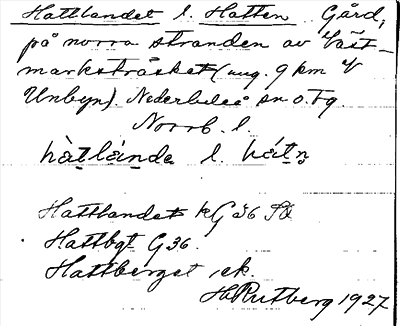 Hattlandet l. Hatten Gård,
på norra stranden av Väst-
marksträsket (ung. 9 km V
Unbyn). Nederluleå sn o. Tg.
Norrb. l.
hàtlánda l. hátn
Hattlandet kG 36 SÖ
Hattbgt G 36.
Hattberget , ek.
H Rutberg 1927